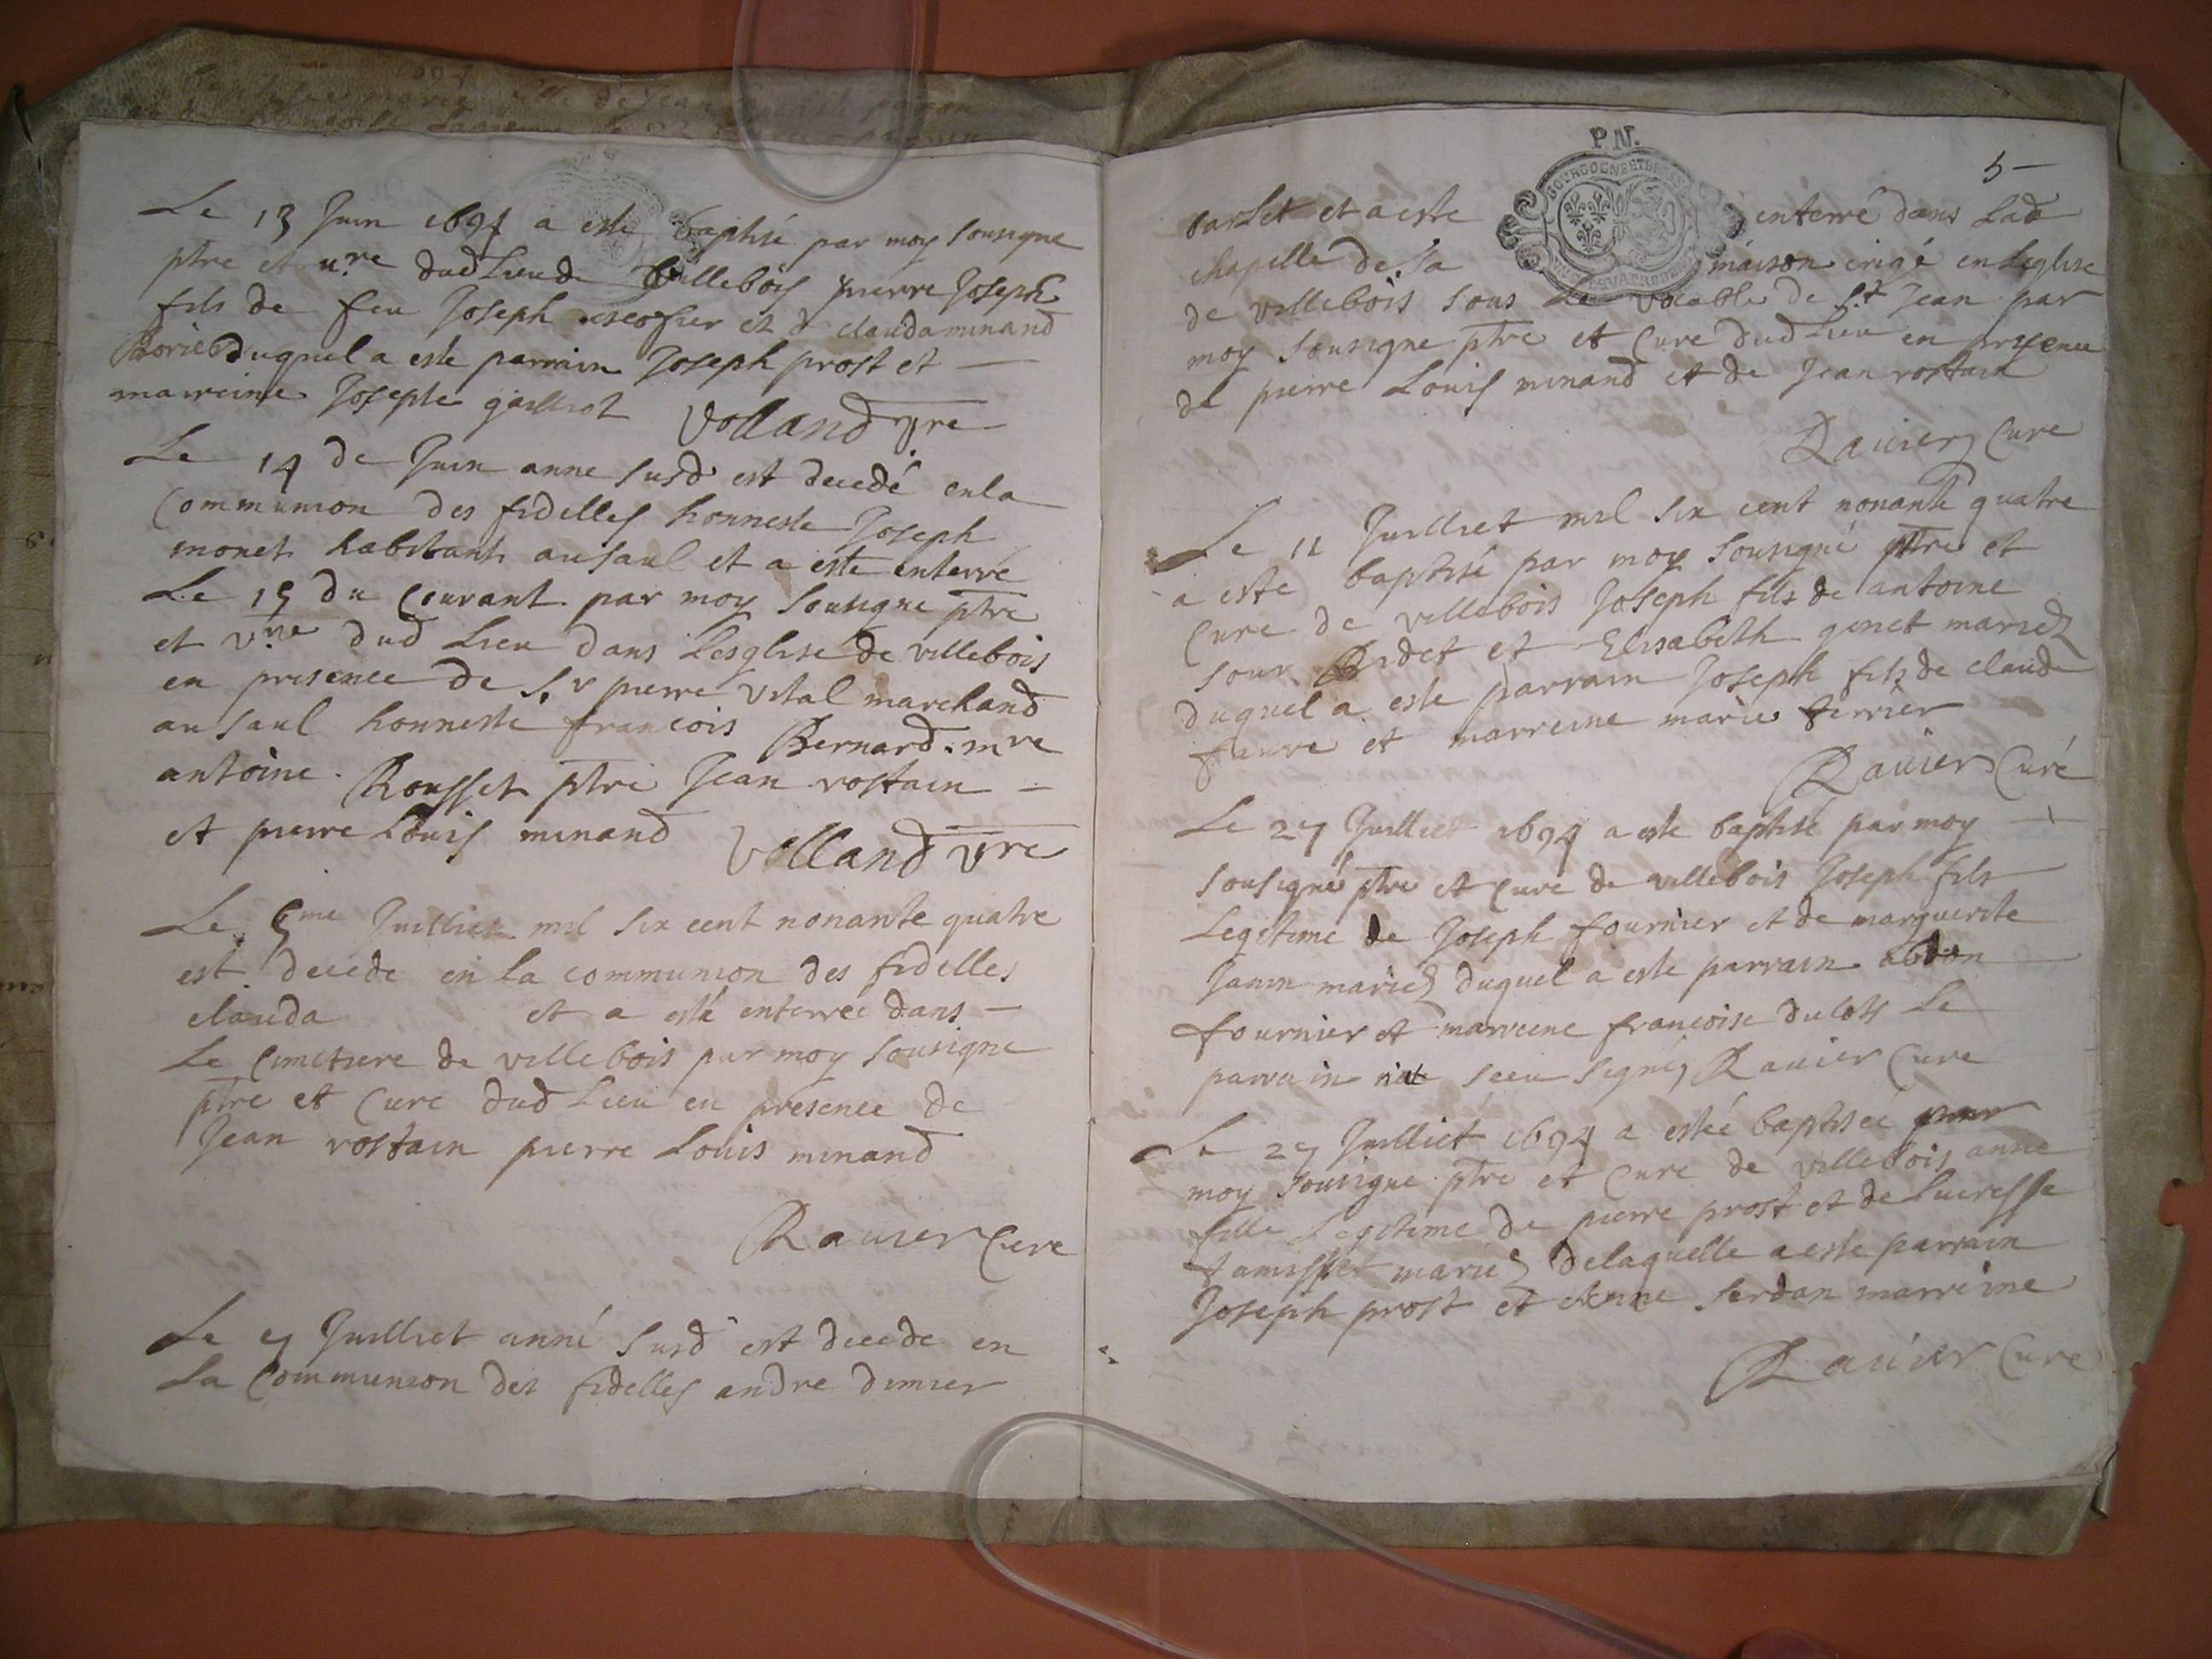 Le 13 Juin 1694 a este baptisé par moy sousigne
ptre et vre dud Lieu de Villebois pierre Joseph
fils de feu Joseph escofier et d clauda minand
mariés duquel a este parrain Joseph prost et
marreine Josephe gailliot Volland vre
Le 14 de Juin anne susd est decedé en la
Communion des fidelles honneste Joseph
monet habitant au saul et a este enterré
Le 15 du Courant par moy sousigne ptre
et vre dud Lieu dans Lesglise de villebois
en presence de Sr pierre vital marchand
au saul honneste francois Bernard mre
antoine Rousset ptre Jean rostain
et pierre Louis minand Volland vre
Le 5me Juilliet mil six cent nonante quatre
est decede en la communion des fidelles
clauda et a esté enterrée dans
Le Cimetiere de villebois par moy sousigne
ptre et Cure dud Lieu en presence de
Jean rostain pierre Louis minand
Ravier Cure
Le 9 Juilliet anné susd est decede en
La Communion des fidelles andre dimier
P N.
5
BOURGOGNE ET BRESSE
et a este enterré dans Lad
chapelle de sa maison erigé en Leglise
de villebois sous Le vocable de St Jean par
moy sousigne ptre et Cure dud Lieu en presence
de pierre Louis minand et de Jean rostain
Ravier Cure
Le 11 Juilliet mil six cent nonante quatre
a este baptisé par moy sousigné ptre et
Cure de villebois Joseph fils de antoine
Bidet et Elisabeth genet mariez
duquel a este parrain Joseph fils de claude
favre et marreine marie ferrier
Ravier Curé
Le 27 Juilliet 1694 a este baptisé par moy
sousigné ptre et cure de villebois Joseph fils
Legitime de Joseph fournier et de marguerite
Janin mariez duquel a este parrain abdon
fournier et marreine francoise dulots Le
parrain sceu signé, Ravier Cure
Le 29 Juilliet 1694 a esteé baptiseé par
moy sousigne ptre et Cure de villebois anne
fille Legitime de pierre prost et de Lucresse
mariéz delaquelle a este parrain
Joseph prost et anne serdan marreine
Ravier Cure